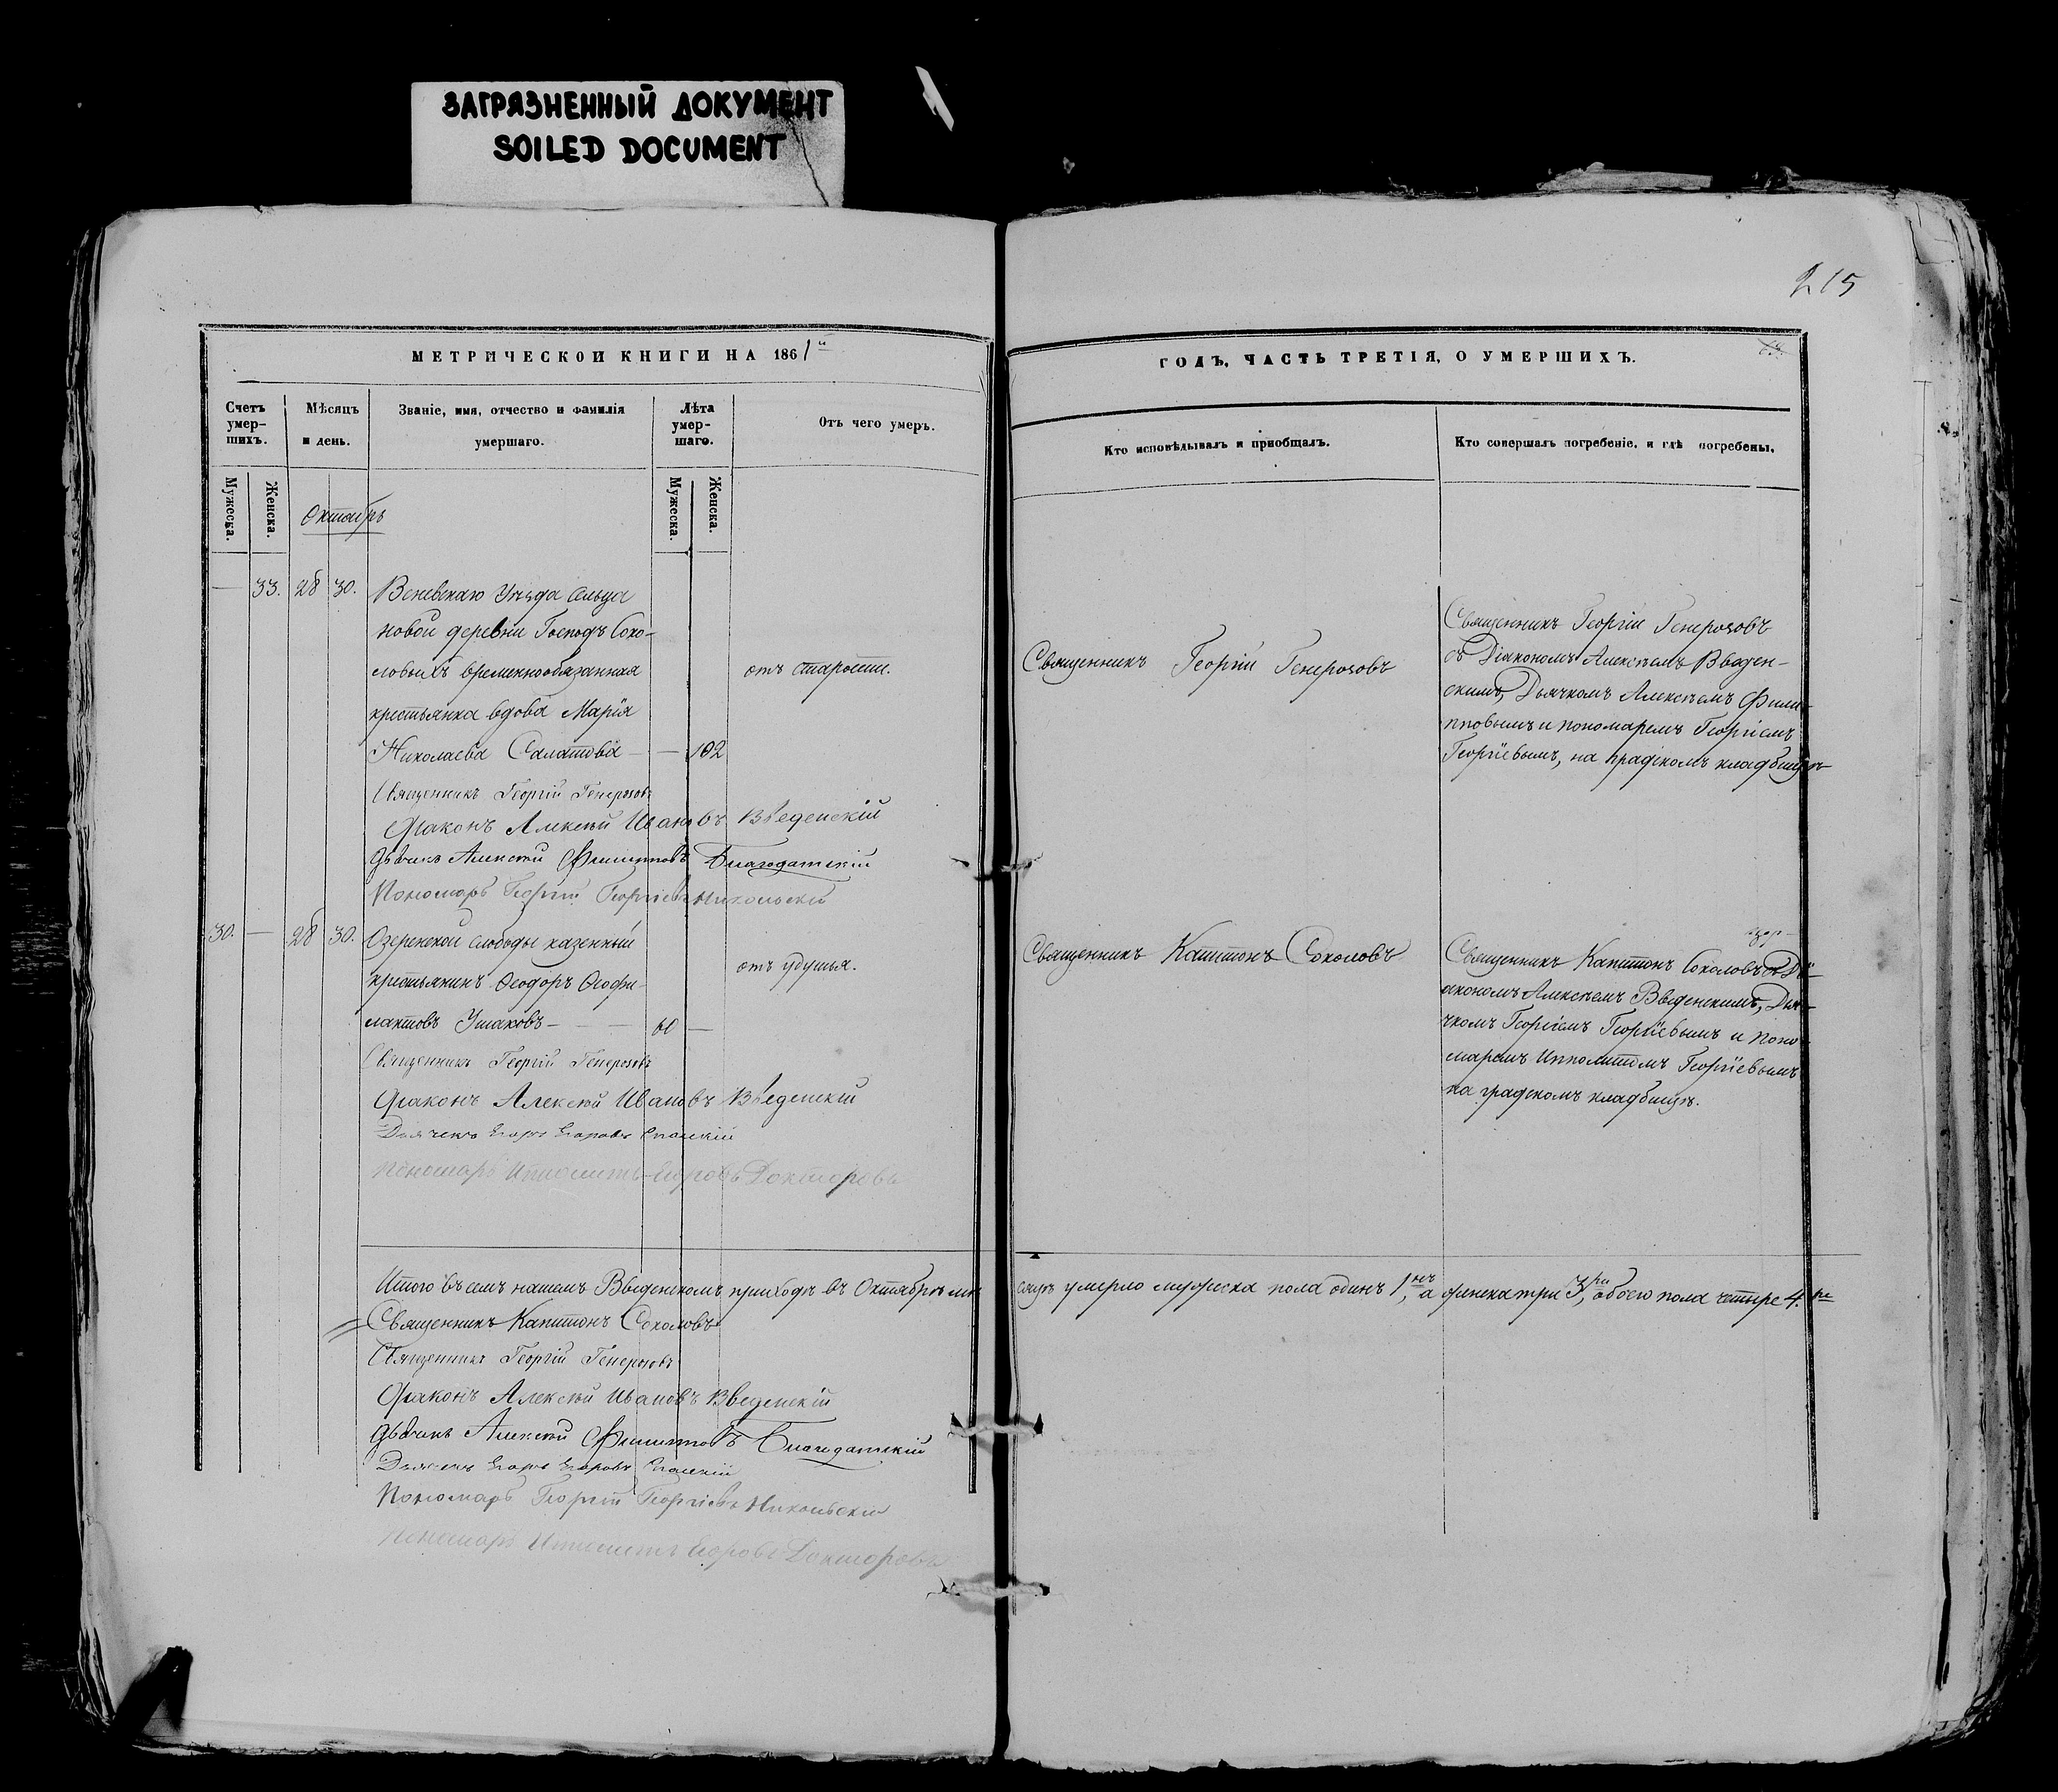 ЗАГРЯЗНЕННЫЙ ДОКУМЕНТ
SOILED DOCUMENT
215
МЕТРИЧЕСКОЙ КНИГИ НА 1861й
ГОДЪ, ЧАСТЬ ТРЕТІЯ, О УМЕРШИХЪ.
Счетъ умер-шихъ.
Мѣсяцъ и день.
Званіе, имя, отчество и фамилія умершаго.
Лѣта умер-шаго.
Отъ чего умеръ.
Кто исповѣдывалъ и пріобщалъ.
Кто совершалъ погребеніе, и гдѣ погребены.
Мужеска.
Женска.
Мужеска.
Женска.
Октябрь
— 33. 28 30. Веневскаго Уѣзда сельца
новой деревни Господъ Соко-
ловыхъ временнообязанная
крестьянка вдова Марія
Николаева Салатова — — 102
отъ старости.
Священникъ Георгій Генерозовъ
Священникъ Георгій Генерозовъ
съ Діакономъ Алексѣемъ Введен-
скимъ, Дьячкомъ Алексѣемъ Фили-
пповымъ и пономаремъ Георгіемъ
Георгіевымъ, на градскомъ кладбищѣ
Священникъ Георгій Генерозовъ
Діаконъ Алексѣй Ивановъ Введенскій
Дьячокъ Алексѣй Филипповъ Благодатскій
Пономарь Георгій Георгіевъ Никольскій
30. — 28 30. Озеренской слободы казенный
крестьянинъ Ѳеодоръ Ѳеофи-
лактовъ Ушаковъ — — — 60 —
отъ удушья.
Священникъ Капитонъ Соколовъ
Священникъ Капитонъ Соколовъ съ Ді-
акономъ Алексѣемъ Введенскимъ, Дья-
чкомъ Георгіемъ Георгіевымъ и поно-
маремъ Ипполитомъ Георгіевымъ
на градскомъ кладбищѣ.
Священникъ Георгій Генерозовъ
Діаконъ Алексѣй Ивановъ Введенскій
Дьячекъ Егоръ Егоровъ Спасскій
Пономарь Ипполитъ Егоровъ Докторовъ
Итого въ семъ нашемъ Введенскомъ приходѣ въ Октябрѣ мѣ-
сяцѣ умерло мужеска пола одинъ 1нъ, а женска три 3ри, обоего пола четыре 4.ре
Священникъ Капитонъ Соколовъ
Священникъ Георгій Генерозовъ
Діаконъ Алексѣй Ивановъ Введенскій
Дьячокъ Алексѣй Филипповъ Благодатскій
Дьячекъ Егоръ Егоровъ Спасскій
Пономарь Георгій Георгіевъ Никольскій
Пономарь Ипполитъ Егоровъ Докторовъ